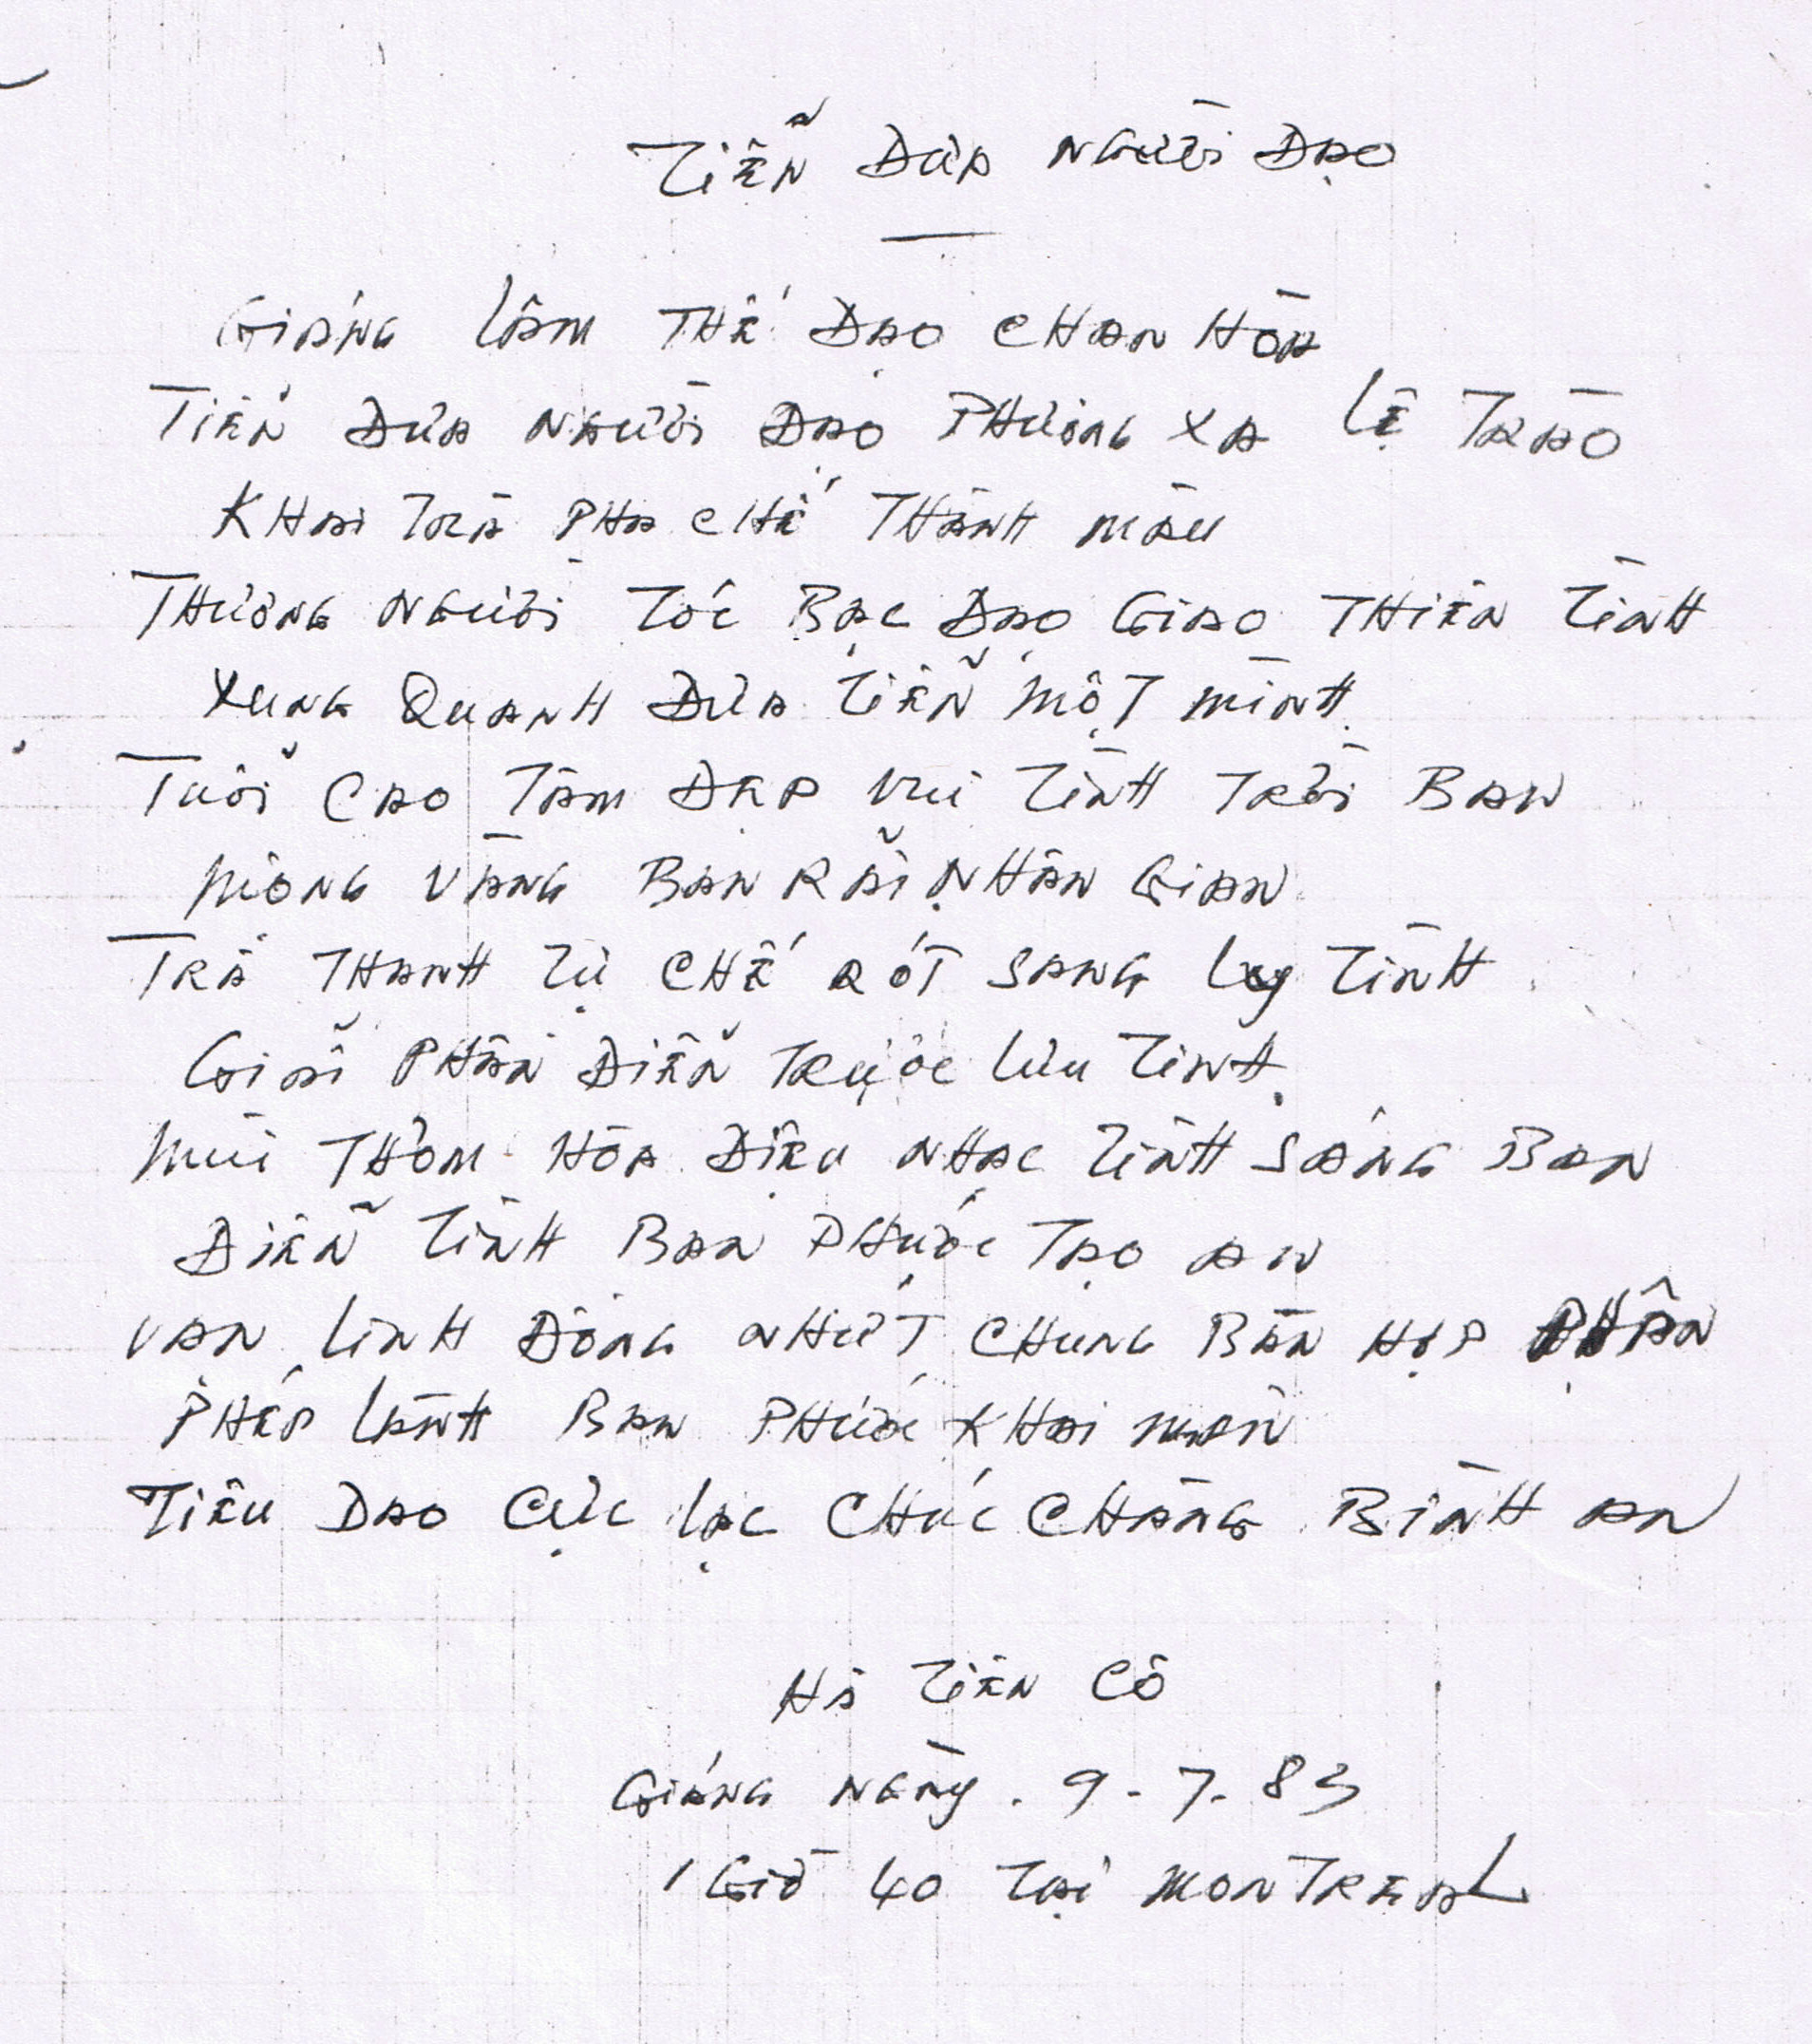 TIỄN ĐƯA NGƯỜI ĐẠO
GIÁNG LÂM THẾ ĐẠO CHAN HÒA
TIỂN ĐƯA NGƯỜI ĐẠO PHƯƠNG XA LỆ TRÀO
KHAI TRÀ PHA CHẾ THÀNH MÀU
THƯƠNG NGƯỜI TÓC BẠC ĐẠO GIAO THIÊN TÌNH
XUNG QUANH ĐƯA TIỄN MỘT MÌNH
TUỔI CAO TÂM ĐẸP VUI TÌNH TRỜI BAN
MONG VÀNG BAN RẢI NHÂN GIAN
TRÀ THANH TỰ CHẾ RÓT SANG LY TÌNH
GIẢI PHÂN ĐIỂN TRƯỢC LƯU TINH
MÙI THƠM HÒA ĐIỆU NHẠC TÌNH SÁNG BAN
ĐIỄN TÌNH BAN PHƯỚC TẠO AN
VẠN LINH ĐỒNG NHỨT CHUNG BÀN HỢP PHÂN
PHÉP LÀNH BAN PHƯỚC KHAI MÀN
TIÊU DAO CỰC LẠC CHÚC CHÀNG BÌNH AN
HÀ TIÊN CÔ
GIÁNG NGÀY . 9 - 7 - 83
1 GIỜ 40 TẠI MONTREAL